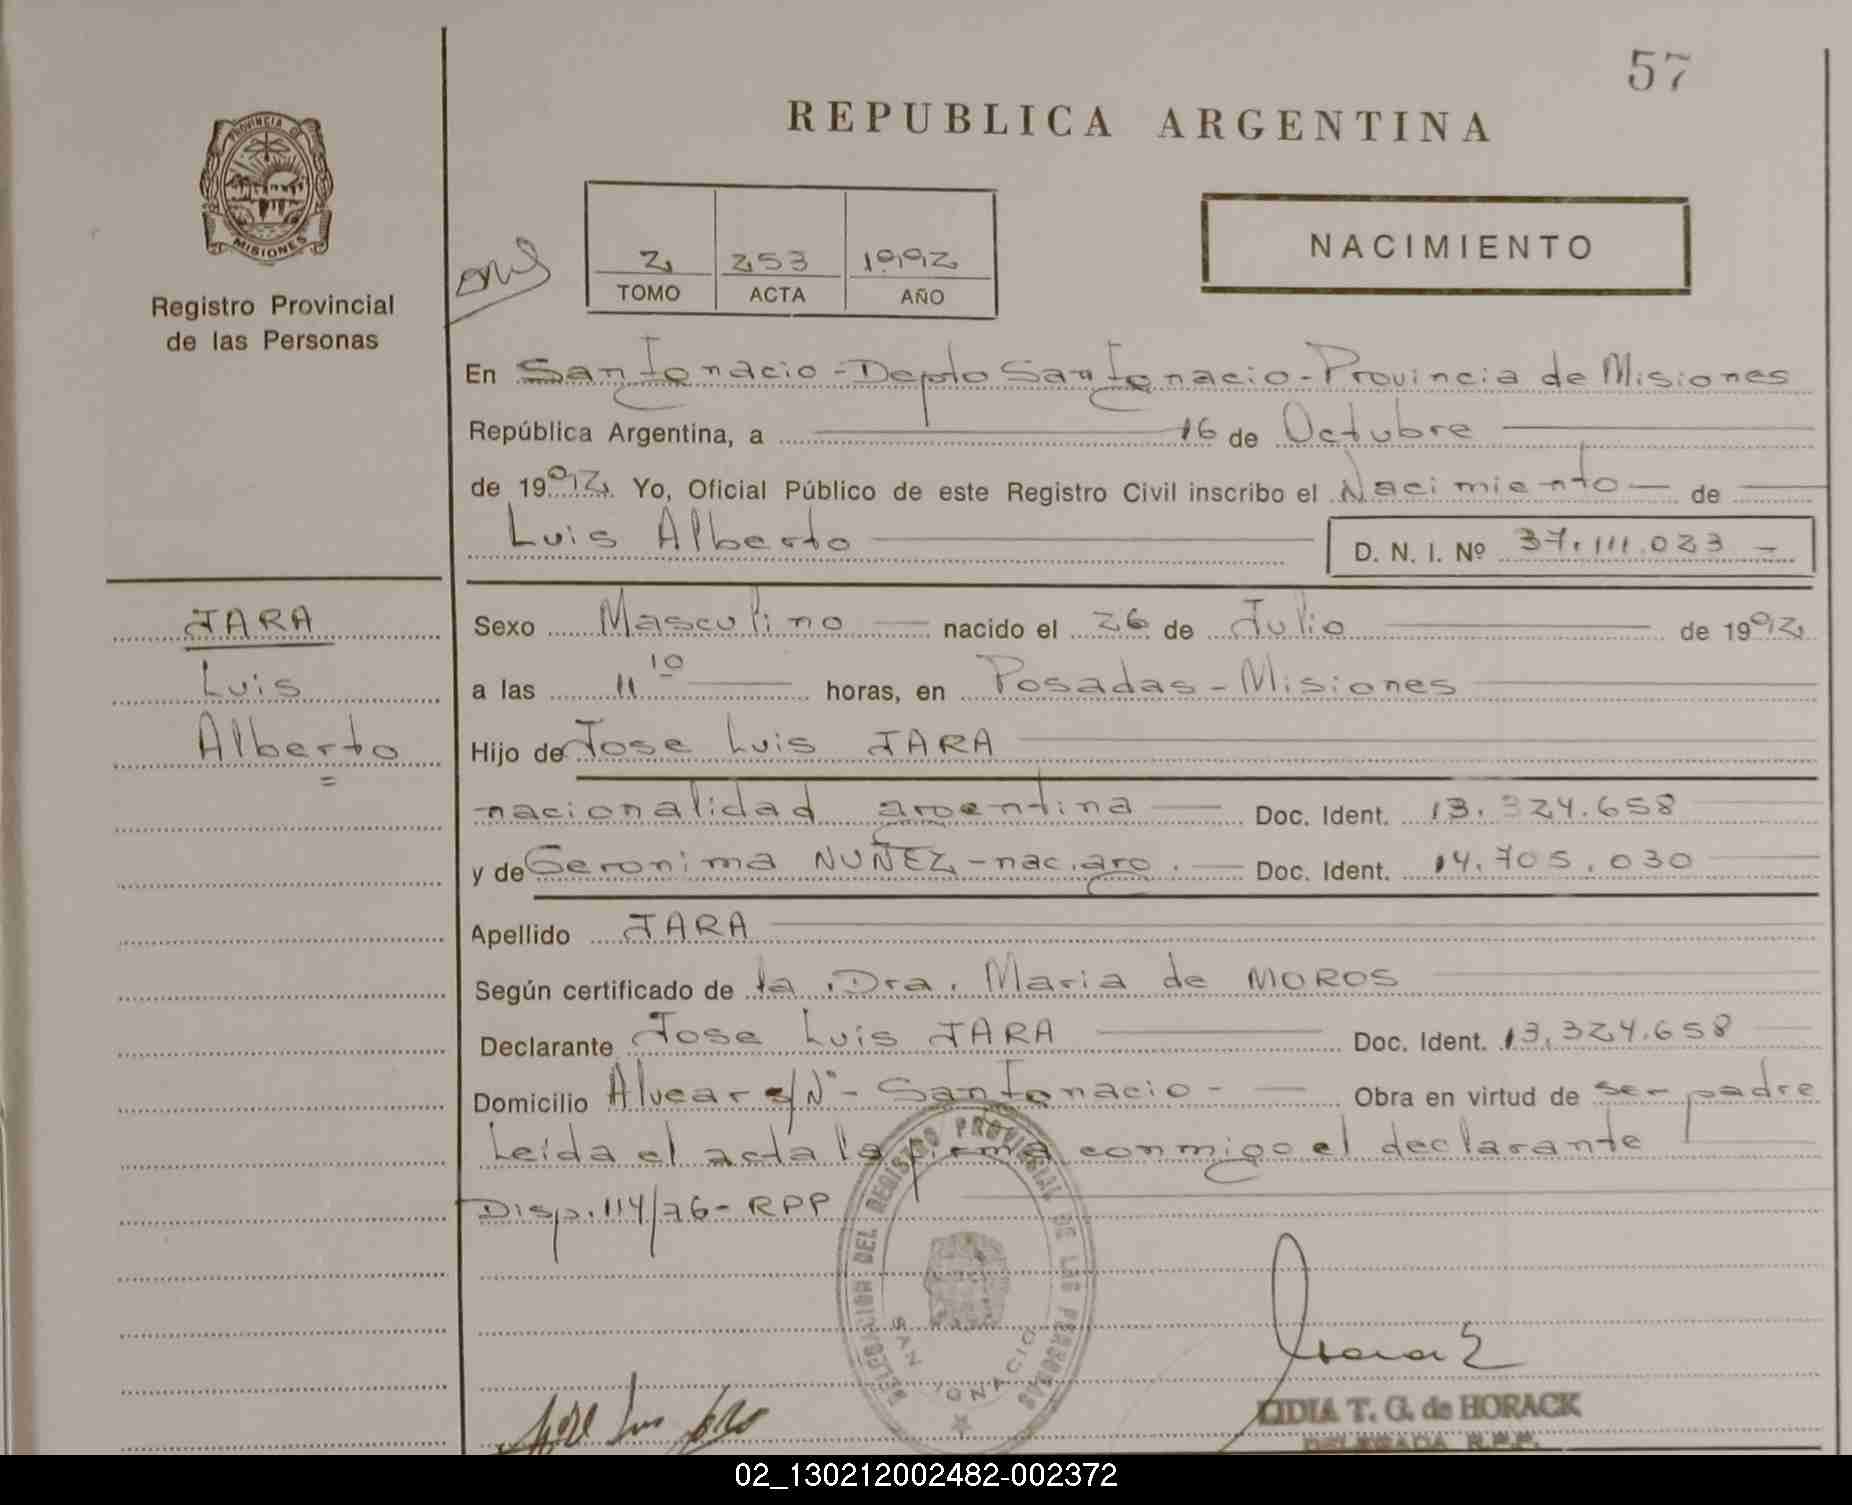 57
REPUBLICA ARGENTINA
PROVINCIA DE
MISIONES
Registro Provincial
de las Personas
2 253 1992
TOMO ACTA AÑO
NACIMIENTO
En San Ignacio - Depto San Ignacio - Provincia de Misiones
República Argentina, a 16 de Octubre
de 1992 Yo, Oficial Público de este Registro Civil inscribo el Nacimiento de
Luis Alberto D. N. I. Nº 37.111.023
JARA
Luis
Alberto
Sexo Masculino nacido el 26 de Julio de 1992
a las 11 10 horas, en Posadas - Misiones
Hijo de Jose Luis JARA
nacionalidad argentina Doc. Ident. 13.324.658
y de Geronima NUÑEZ - nac. arg. Doc. Ident. 14.705.030
Apellido JARA
Según certificado de la Dra. Maria de MOROS
Declarante Jose Luis JARA Doc. Ident. 13.324.658
Domicilio Alvear s/Nº - San Ignacio - Obra en virtud de ser padre
Leída el acta la firma conmigo el declarante
Disp. 114/76 - RPP
DELEGACION DEL REGISTRO PROVINCIAL DE LAS PERSONAS
SAN IGNACIO
LIDIA T. G. de HORACK
DELEGADA R.P.P.
02_130212002482-002372